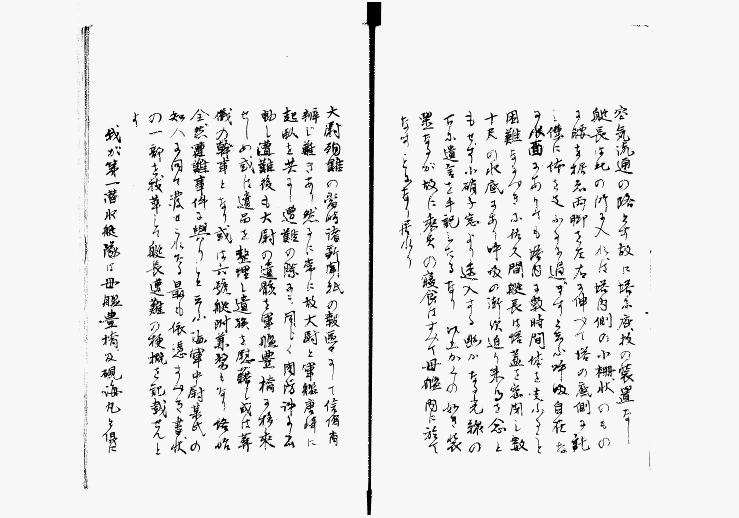 空気流通の路とす故に塔に底板の装置なし
艇長は此の時
に腰を据ゑ両脚を左右に伸べて塔の底側に託
し僅に体を支ふるに過ぎずと云ふ呼吸自在な
る水面にありても塔内に数時間体を支ふること
困難なるべきに佐久間艇長は塔蓋を密閉し数
十尺の水底にあり呼吸の漸次迫り来るを念と
もせず小硝子窓より透入する微かなる光線の
下に遺言を手記したるなり 以上かくの如き装
置なるが故に乗員の寝食はすべて母艦内に於て
なすことなり居れり
大尉殉難の当時諸新聞紙の報区々にして信偽を
弁じ難きあり然るに常に故大尉と軍艦唐崎に
起臥を共にし遭難の際にも同じく
動し遭難後も大尉の遺骸を軍艦豊橋に移乗
せしめ或は遺品を整理し遺族を慰藉し或は葬
儀の幹事となり或は六号艇附
全然遭難事件に与りしと云ふ海軍中尉某氏の
知人に向て
の一部を抜萃して艇長遭難の梗概を記載せんと
す
我が第一潜水艇隊は母艦豊橋及硯海丸と倶に